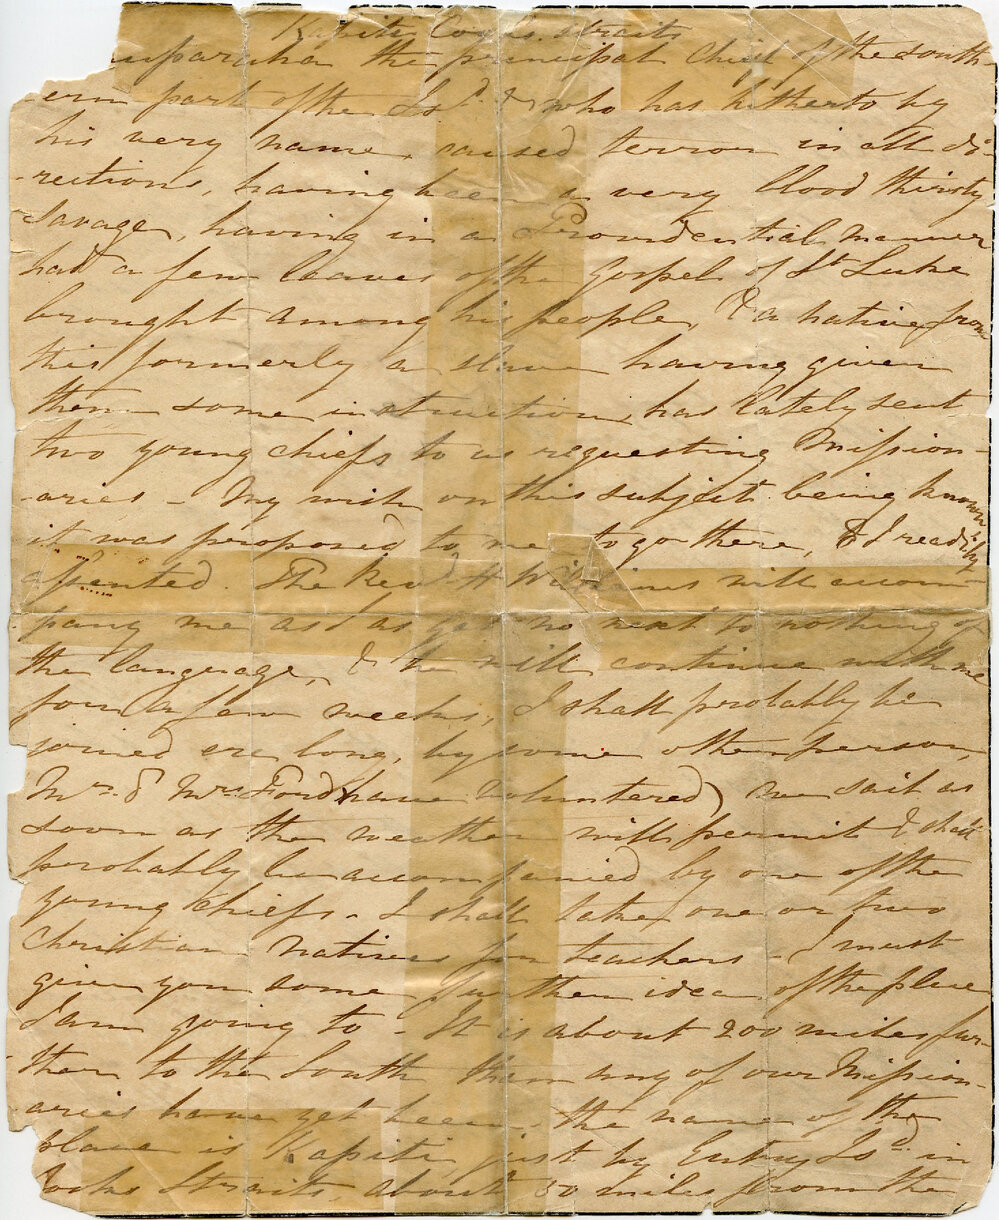 Kapiti Cook's Straits
uparaha the principal Chief of the south-
-ern part of the Isd. & who has hitherto by
his very name, caused terror in all di-
-rections, having been a very blood thirsty
Savage, having in a Providential manner
had a few leaves of the Gospel of St Luke
brought among his people, & a native from
this formerly a slave having given
them some instruction, has lately sent
two young chiefs to us requesting Mission-
-aries - My wish on this subject being known
it was proposed to me to go there, & I readily
assented. The Revd H Williams will accom-
pany me as I as yet no next to nothing of
the language, & he will continue with me
for a few weeks, I shall probably be
joined ere long, by some other person,
Mr. & Mrs Ford have voluntered) we sail as
soon as the weather will permit & shall
probably be accompanied by one of the
young Chiefs - I shall take one or two
Christian natives for teachers - I must
give you some further idea of the place
I am going to - It is about 200 miles fur-
ther to the South than any of our Mission-
aries have yet been, the name of the
place is Kapiti just by Entry Isd in
Cooks Straits about 30 miles from the